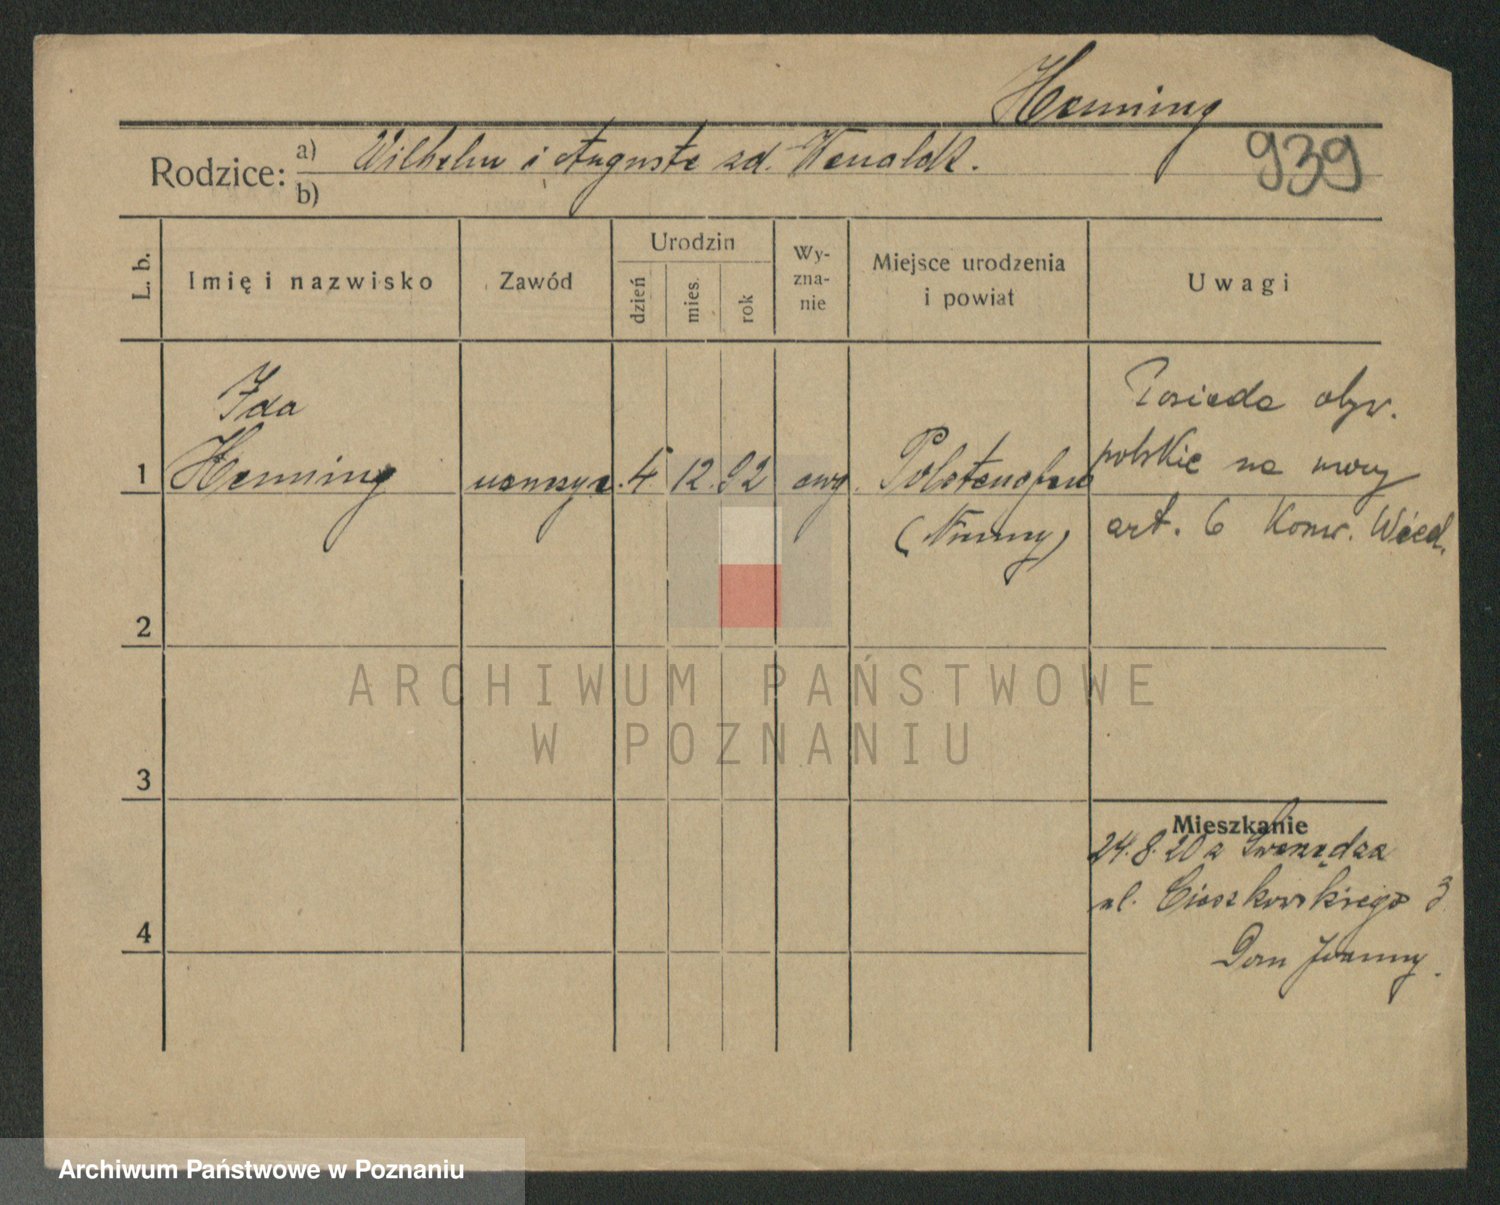 Henning
939
Rodzice: a) Wilhelm i Auguste zd.
b)
L. b.
Imię i nazwisko
Zawód
Urodzin
dzień
mies.
rok
Wy-
zna-
nie
Miejsce urodzenia
i powiat
Uwagi
Ida
1 Henning 4 12. 92 ewg.
(Niemcy)
Posiada obyw.
polskie na mocy
art. 6 Konw. Wied.
2
3
4
Mieszkanie
24.8.20 z Swarzędza
ul. Cieszkowskiego 3
Dom
ARCHIWUM PAŃSTWOWE
W POZNANIU
Archiwum Państwowe w Poznaniu